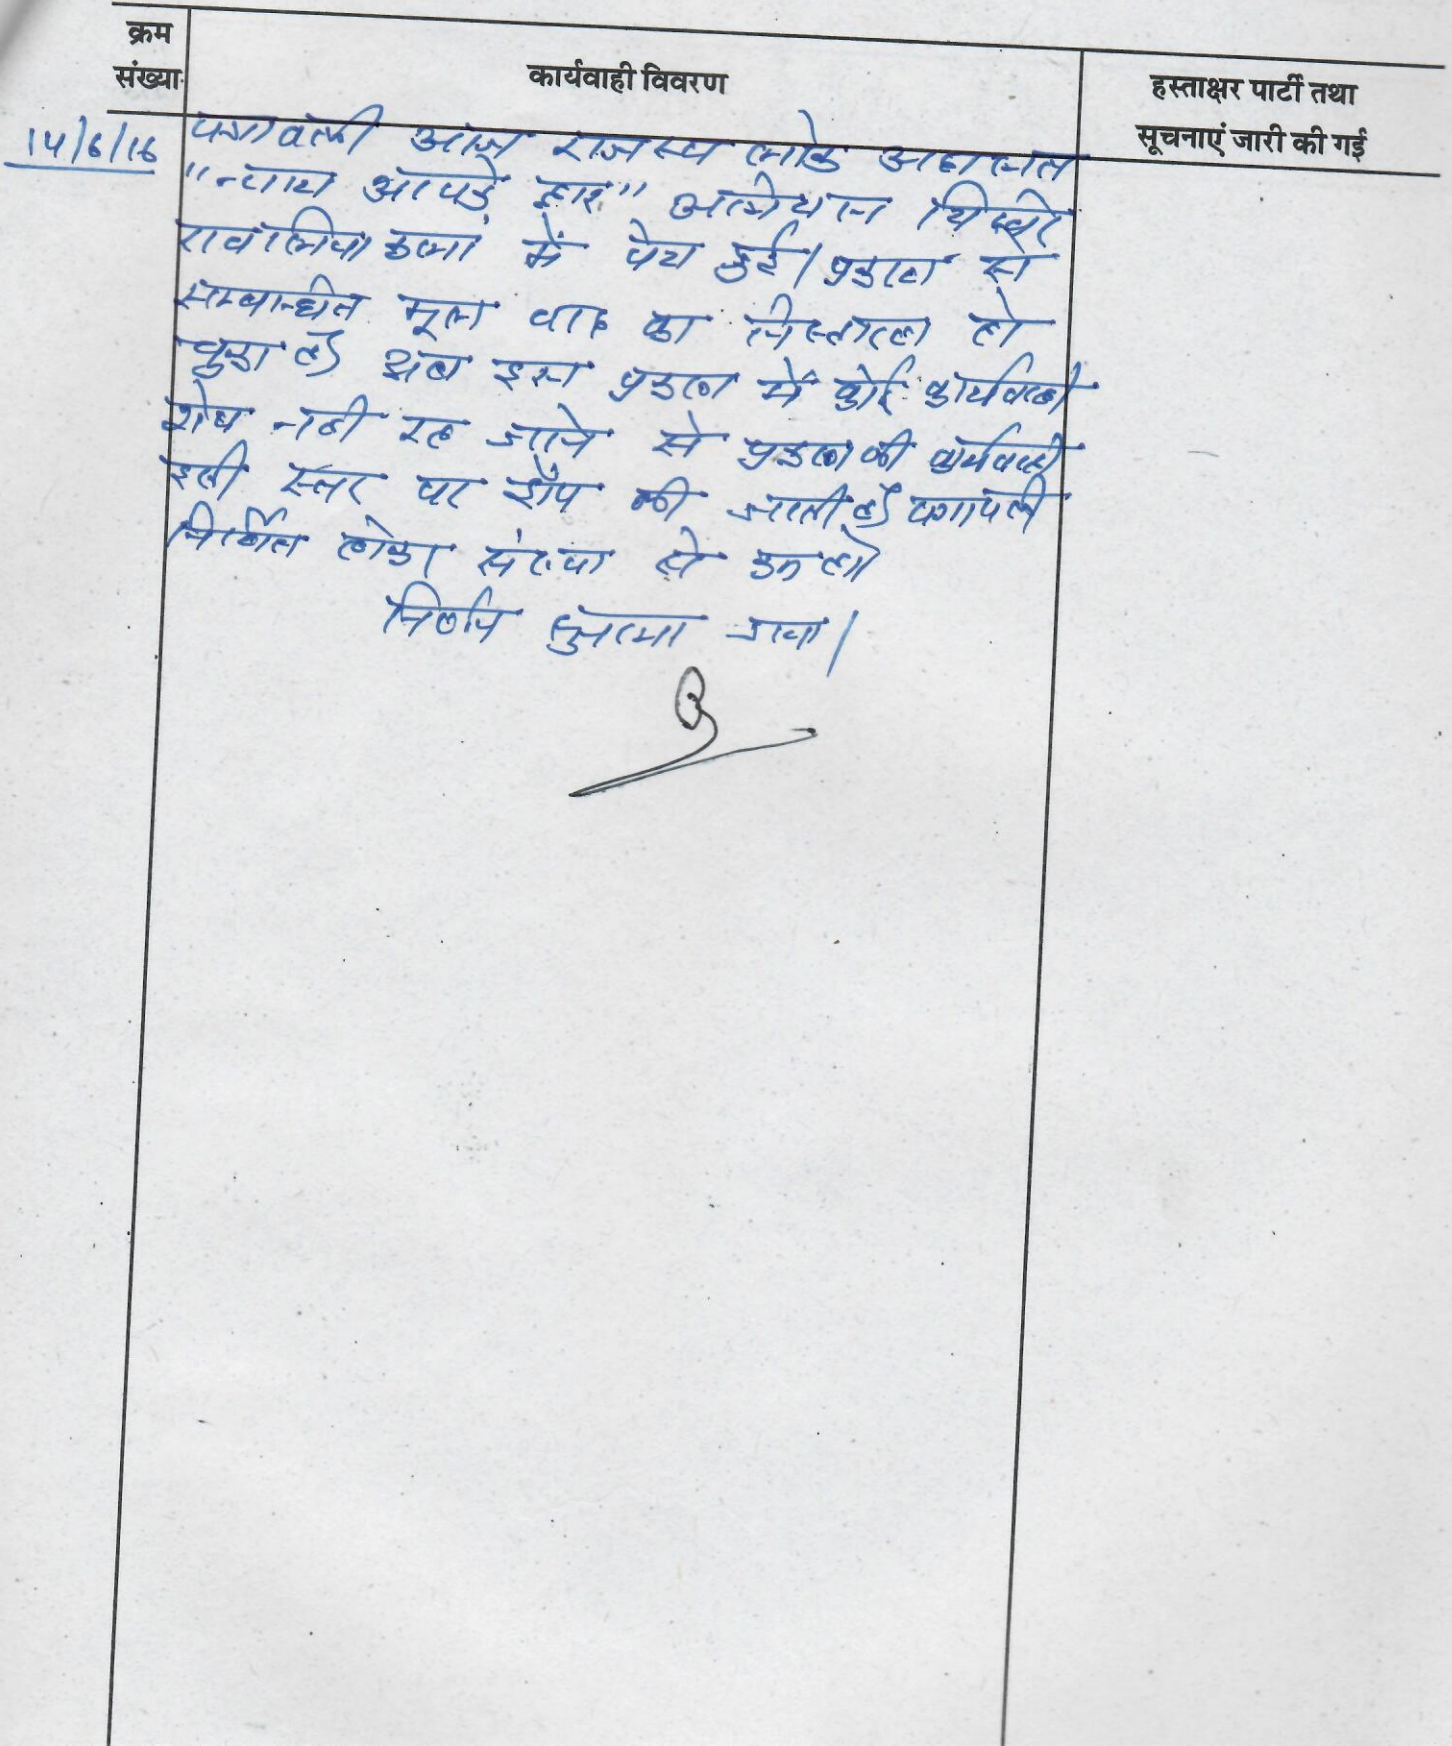 क्रम
संख्या
कार्यवाही विवरण
हस्ताक्षर पार्टी तथा
सूचनाएं जारी की गई
14/6/16
पत्रावली आज राजस्व लोक अदालत
"न्याय आपके द्वार" अभियान
में पेश हुई। प्रकरण से
सम्बन्धित मूल वाद का निस्तारण हो
चुका है। अब इस प्रकरण में कोई कार्यवाही
शेष नहीं रह जाने से प्रकरण की कार्यवाही
इसी स्तर पर ड्रॉप की जाती है। पत्रावली
निर्णित होकर संख्या से कम हो।
निर्णय सुनाया गया।